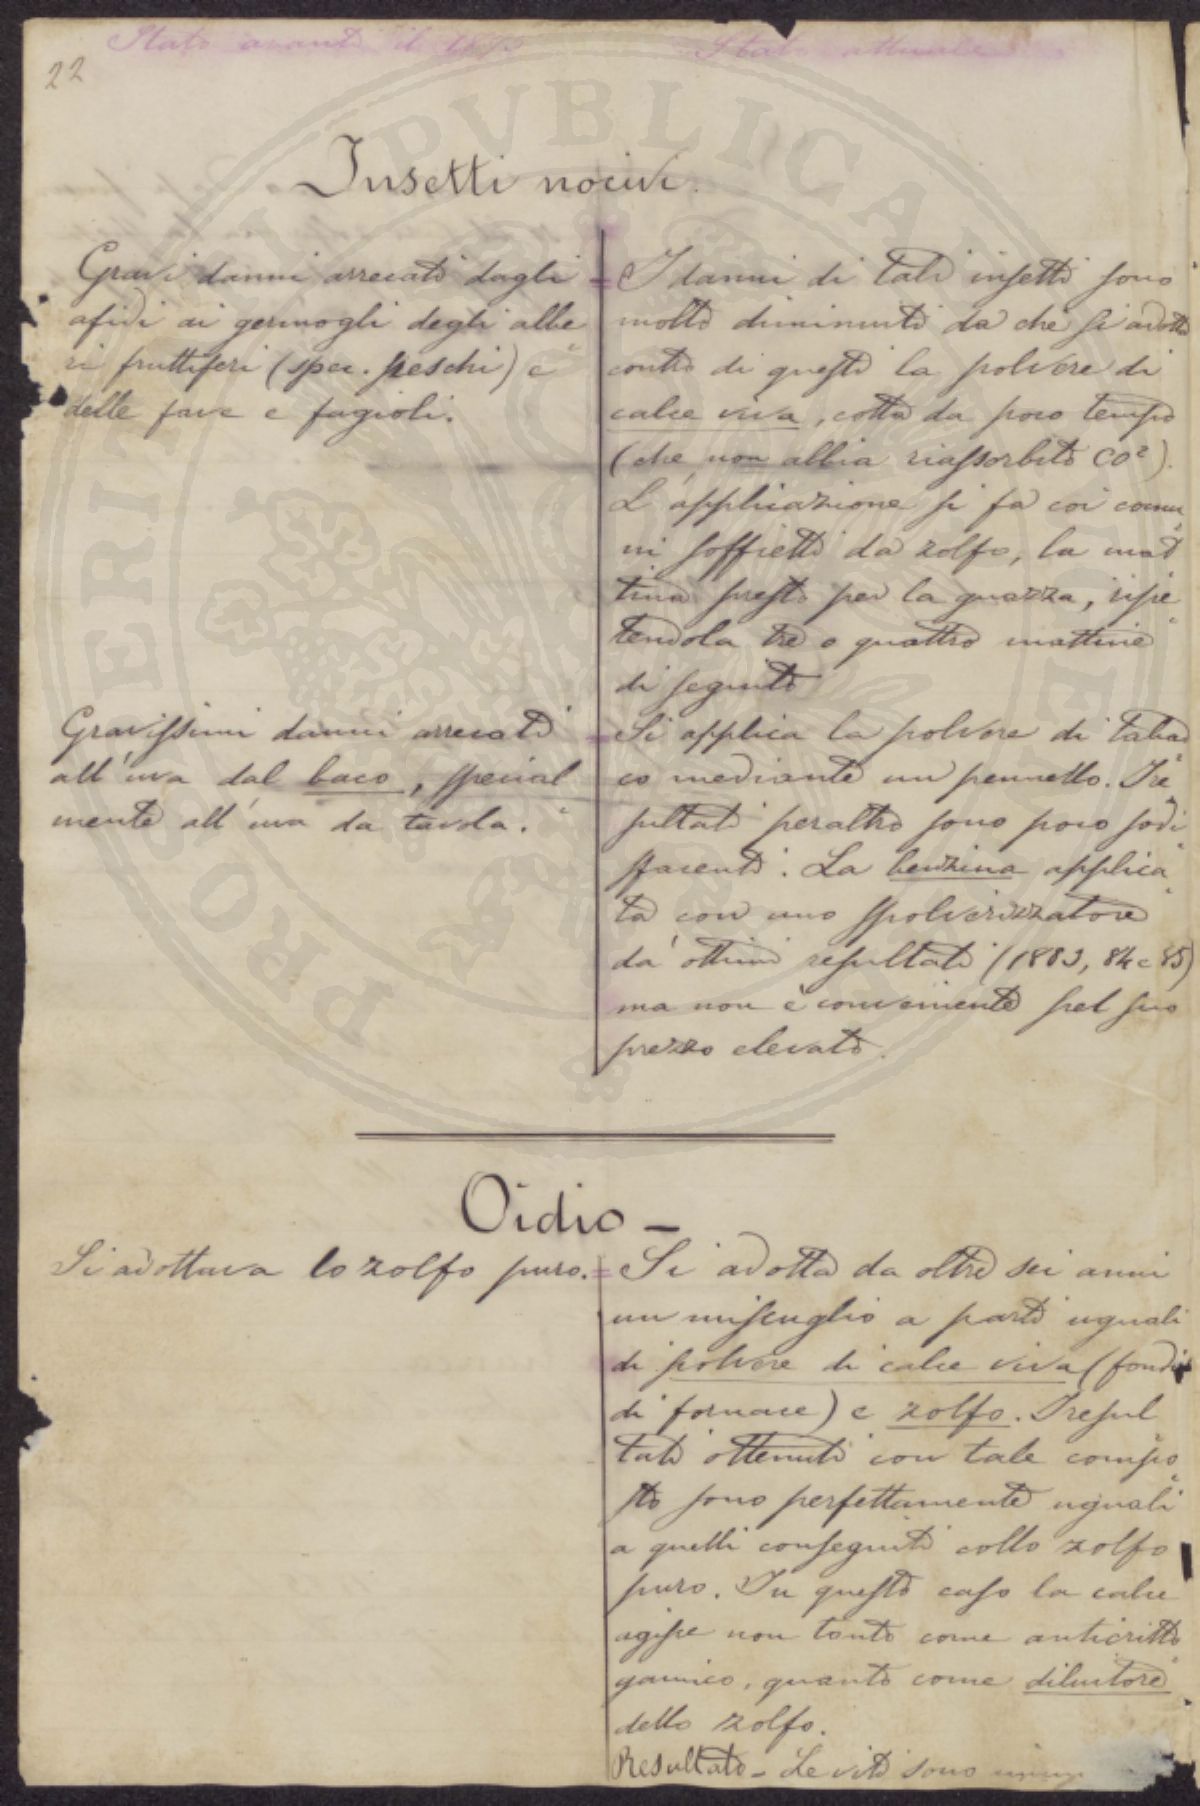 Stato avanti il
Stato attuale
22
Insetti nocivi.
Gravi danni arrecati dagli
afidi ai germogli degli albe
ri fruttiferi (spec. peschi) e
delle fave e fagioli.
= I danni di tali insetti sono
molto diminuiti da che si adotta
contro di questi la polvere di
calce viva, cotta da poco tempo
(che non abbia riassorbito CO²).
L'applicazione si fa coi comu
ni soffietti da zolfo, la mat
tina presto per la guazza, ripe
tendola tre o quattro mattine
di seguito
Gravissimi danni arrecati
all'uva dal baco, special
mente all'uva da tavola.
= Si applica la polvere di tabac
co mediante un pennello. I re
sultati peraltro sono poco sodi
sfacenti. La benzina applica
ta con uno spolverizzatore
dà ottimi resultati (1883, 84 e 85)
ma non è conveniente pel suo
prezzo elevato.
Oidio –
Si adottava lo zolfo puro.
= Si adotta da oltre sei anni
un miscuglio a parti uguali
di polvere di calce viva (fondi
di fornace) e zolfo. I resul
tati ottenuti con tale compo
sto sono perfettamente uguali
a quelli conseguiti collo zolfo
puro. In questo caso la calce
agisce non tanto come anticritto
gamico, quanto come dilutore
dello zolfo.
Resultato – Le viti sono
PROSPERITATI PVBLICAE AVGENDAE